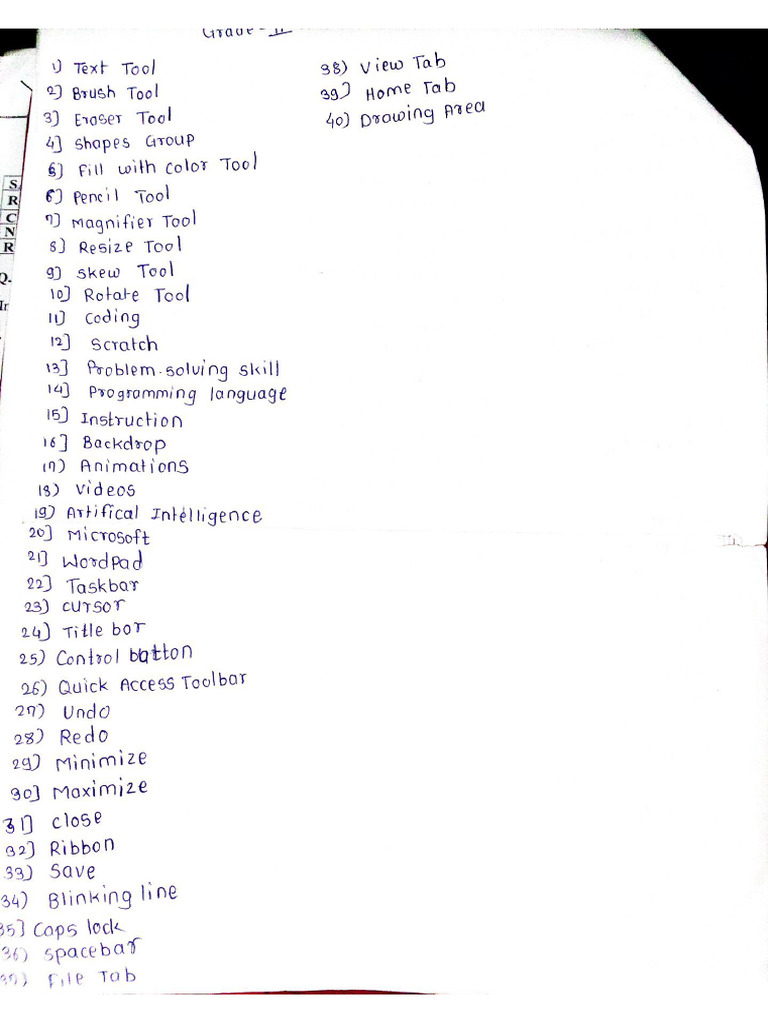 Grade - II
1) Text Tool
2) Brush Tool
3) Eraser Tool
4] Shapes Group
5] Fill with color Tool
6] Pencil Tool
7) Magnifier Tool
8] Resize Tool
9) Skew Tool
10] Rotate Tool
11] Coding
12] Scratch
13] Problem-solving skill
14] Programming language
15] Instruction
16] Backdrop
17) Animations
18) Videos
19) Artifical Intelligence
20] Microsoft
21] WordPad
22] Taskbar
23) cursor
24) Title bar
25) Control button
26) Quick Access Toolbar
27) Undo
28) Redo
29) Minimize
30] Maximize
31] close
32] Ribbon
33) Save
34) Blinking line
35] Caps lock
36) Spacebar
37) File Tab
38) View Tab
39) Home Tab
40) Drawing Area
S
R
C
N
R
Q.
In